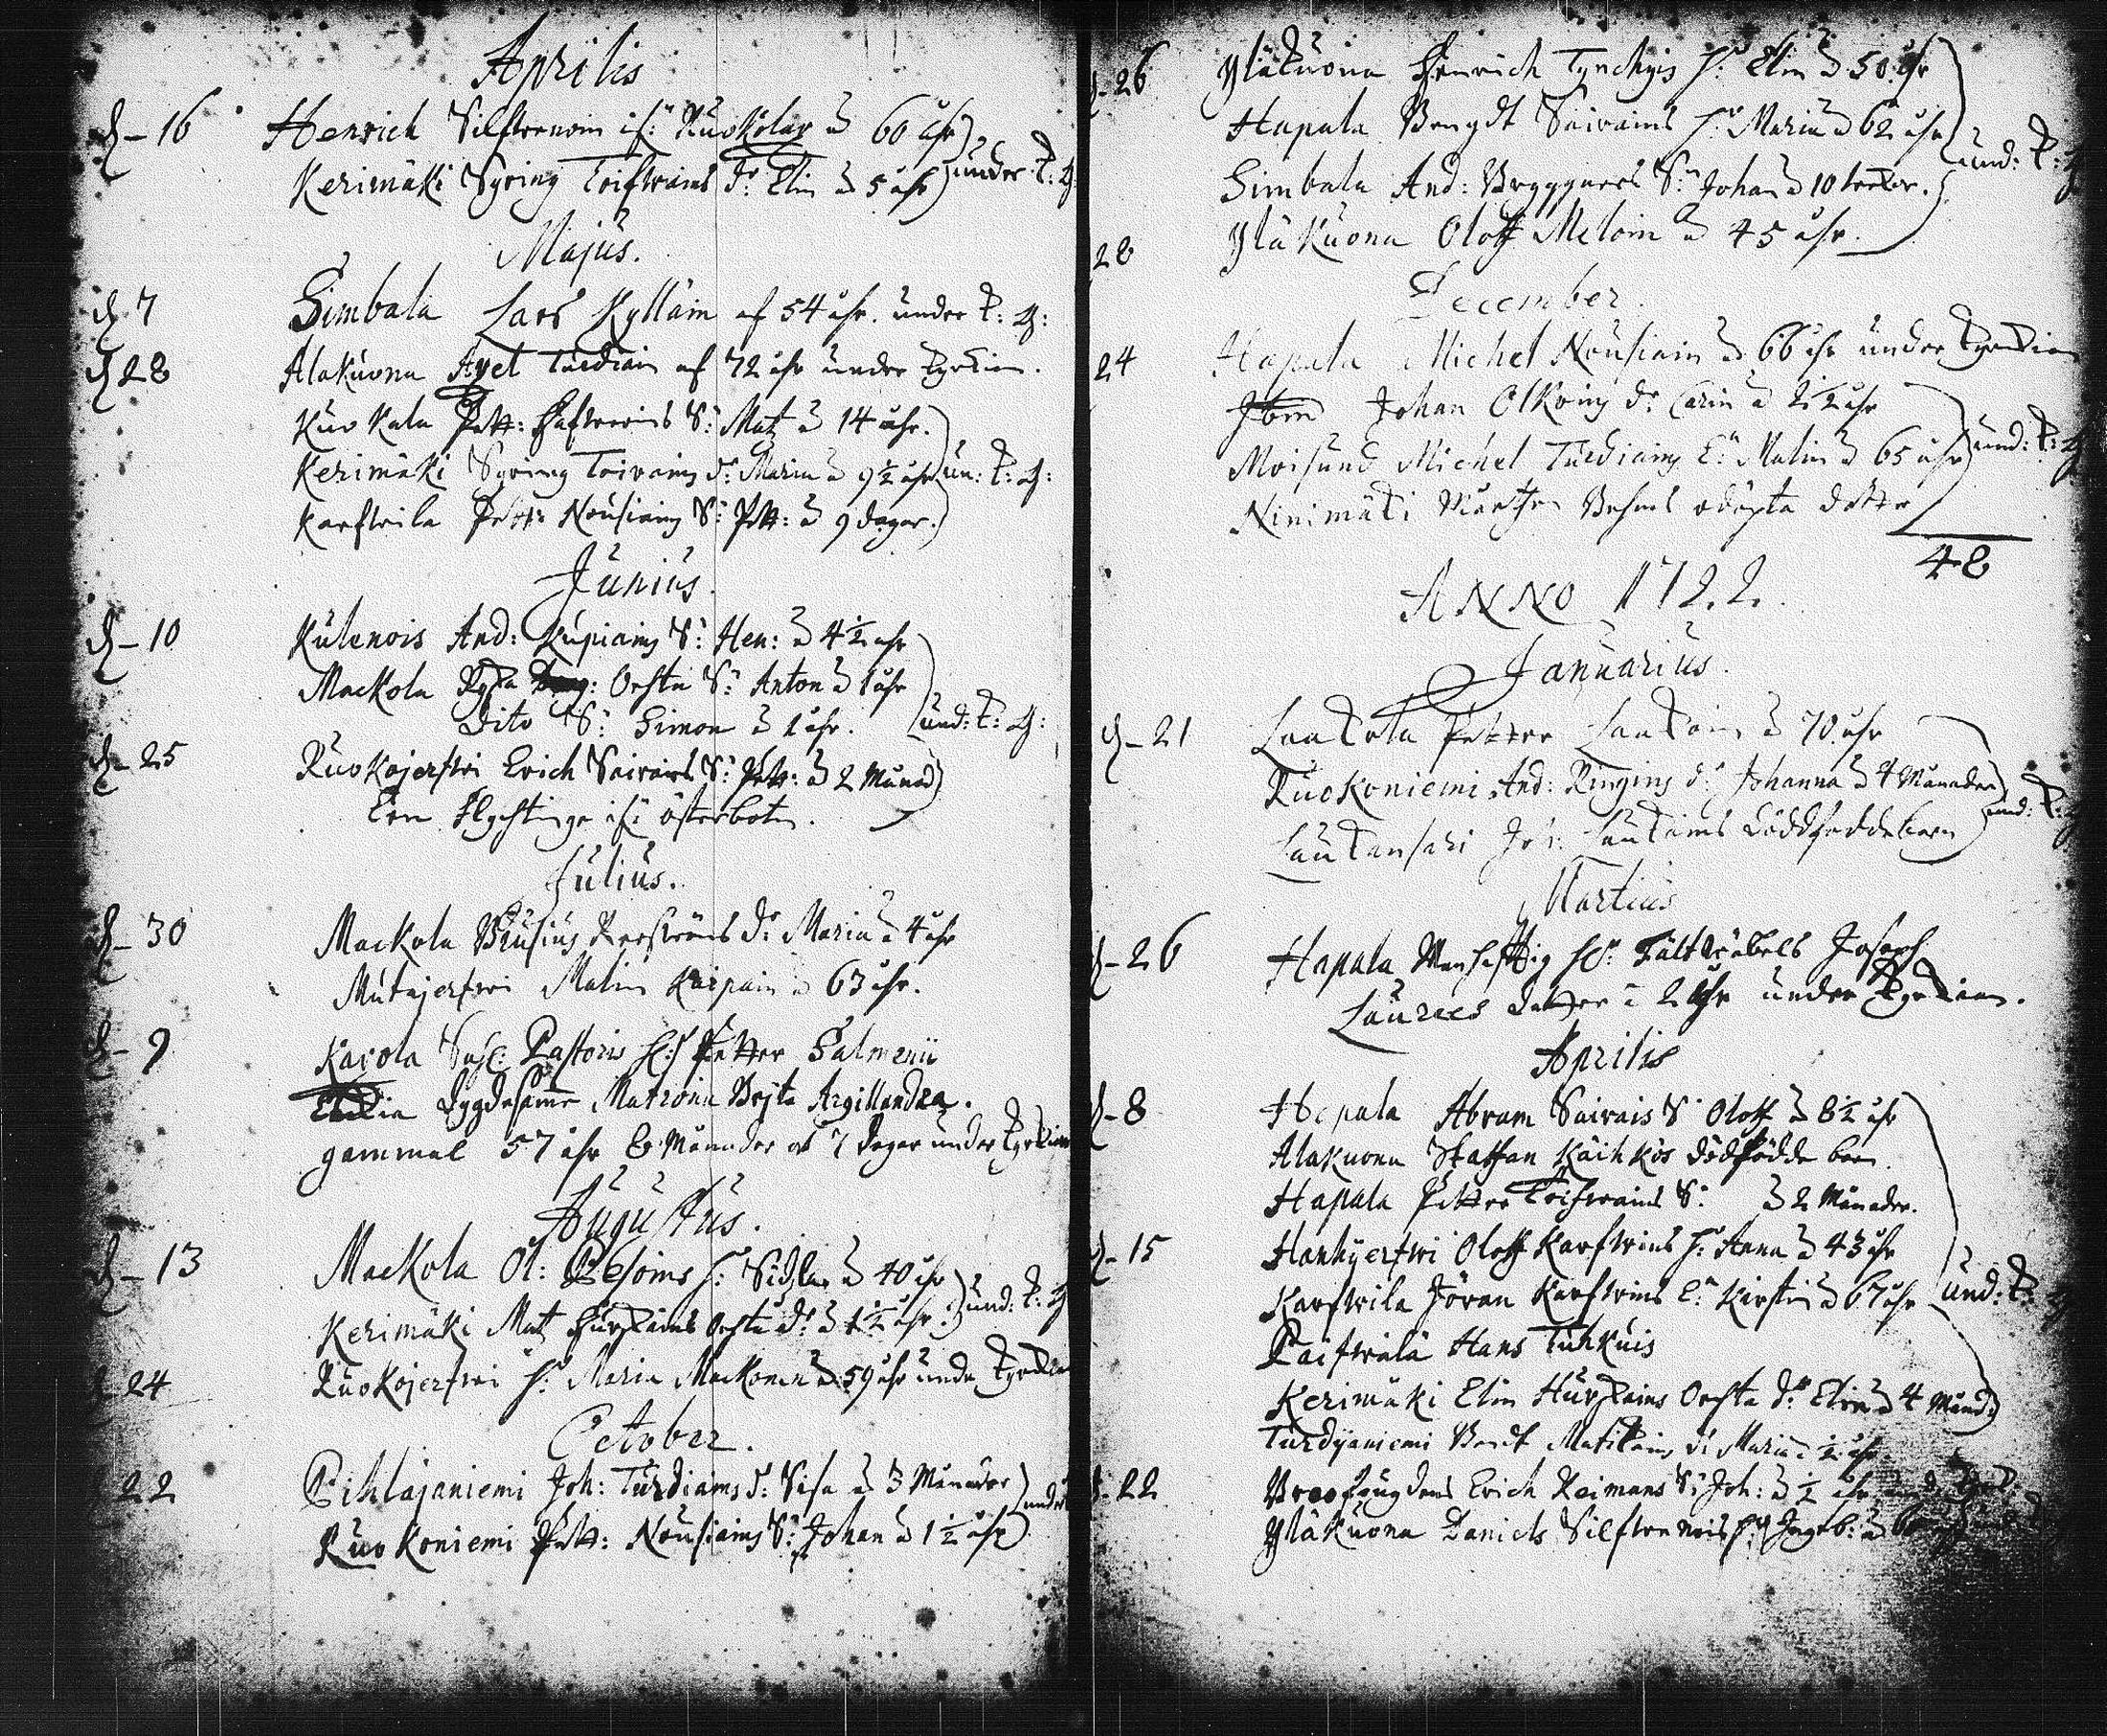 Aprilis
d. 16 Henrich Silfwenoin if: Kuokolax a 60 åhr
Kerimäki Syring Toifwains dr: Elin a 5 åhr under k: g:
Majus.
d 7 Simbala Lars Kylläin af 54 åhr. under k: g:
d 28 Alakuona Axel Turdiain af 72 åhr under kyrkian.
Kuokala Pett: S: Matz a 14 åhr.
Kerimäki Syring Toivains dr: Maria a 9½ åhr un: k: g:
Karfwila Pett: Nousiains S: Pett: a 9 dagar.
Junius.
d – 10 Kulenois And: Kupiains S: Hen: a 4½ åhr
Mackola Oechta S: Anton a 1 åhr
Dito S: Simon a 1 åhr. und: k: g:
d – 25 Ruokojerfwi Erich Sairains S: Pett: a 2 Månad
Een Flychtinge if: österboten.
Julius.
d – 30 Mackola Brusius dr: Maria a 4 åhr
Mutajerfwi Malin Karpain a 63 åhr.
d – 9 Karola Sahl: Pastoris H:r Petter Salmenii
Dygdesamme Matrona Brita Argillandra.
gammal 57 åhr 6 Månader ok 7 dagar under kyrkian
Augustus.
d – 13 Mackola Ol: Pesoins h: a 40 åhr
Kerimäki Mat Hurskains oechta dr a 1½ åhr. und: k: g
24 Ruokojerfwi h: Maria Mackonen a 59 åhr under kyrkian
October.
22 Pihlajaniemi Joh: Turdiains d: Lisa a 3 Månader
Ruokoniemi Pett: Nousiains S: Johan a 1½ åhr under
d – 26 Yläkuona Henrich Tynckyis h: Elin a 50 åhr
Hapala Bengdt Sairains h: Maria a 62 åhr
Simbala And: Bryggares S: Johan a 10 weckor. und: k: g
28 Yläkuona Oloff Meloin a 45 åhr.
December.
24 Hapala Michel Nousiain a 66 åhr under kyrkian
Ibm Johan Olkoins dr: Carin a 2½ åhr
Moisund Michel Turdiains E: Malin a 65 åhr und: k: g
Ninimäki Mårten odöpta dotter
48
ANNO 1722.
Januarius.
d – 21 Laukola Petter Laukain a 70 åhr
Ruokoniemi And: Ringins dr: Johanna a 4 Månader und: k: g
Laukansari Joh: Laukains dödföddebarn
Martius
d – 26 Hapala Manhafftig H: Fältwäbels Joseph
Laurees dotter a 2 åhr under kyrkian.
Aprilis
d – 8 Hapala Abram Sairais S: Oloff a 8½ åhr
Alakuona Staffan Käihkös dödfödde barn.
Hapala Petter Toifwains S: a 2 Månader.
d – 15 Hanhijerfwi Oloff Karfwins h: Anna a 43 åhr
Karfwila Jöran Karfwins E: Kirstin a 67 åhr und: k: g
Paifwälä Hans Tuhkuis
Kerimäki Elin Hurskains Oechta dr: Elin a 4 Månad:
Turdijaniemi Bendt Matikains d: Maria a ½ åhr.
d: 22 Erich Reimans S: Joh: a ½ åhr
Yläkuona Daniels Silfwenois h: Ingeb: a